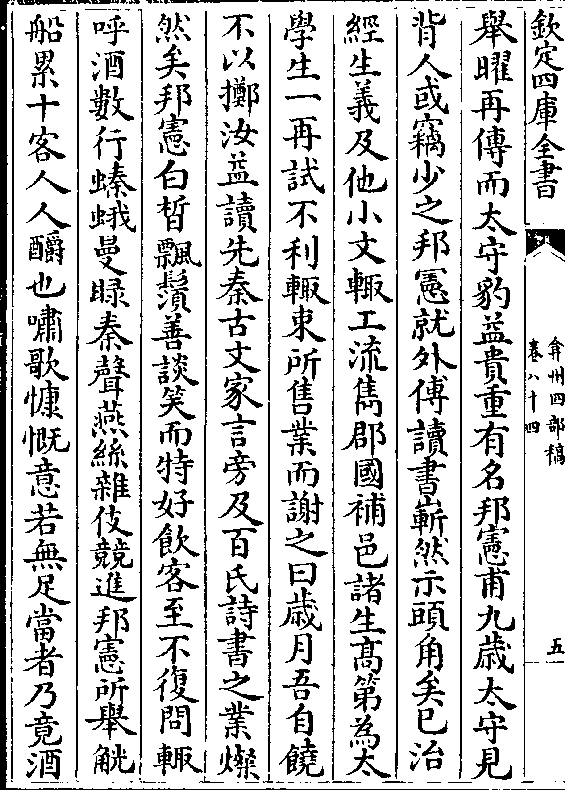 欽定四庫全書
弇州四部稿
卷八十四
五
舉曜再傳而太守豹益貴重有名邦憲甫九歲太守見
背人或竊少之邦憲就外傅讀書嶄然示頭角矣已治
經生義及他小文輙工流雋郡國補邑諸生高第為太
學生一再試不利輙束所售業而謝之曰歳月吾自饒
不以擲汝益讀先秦古文家言旁及百氏詩書之業燦
然矣邦憲白皙飄鬚善談笑而特好飲客至不復問輙
呼酒數行螓蛾曼睩秦聲燕絲雜伎競進邦憲所舉觥
船累十客人人釂也嘯歌慷慨意若無足當者乃竟酒